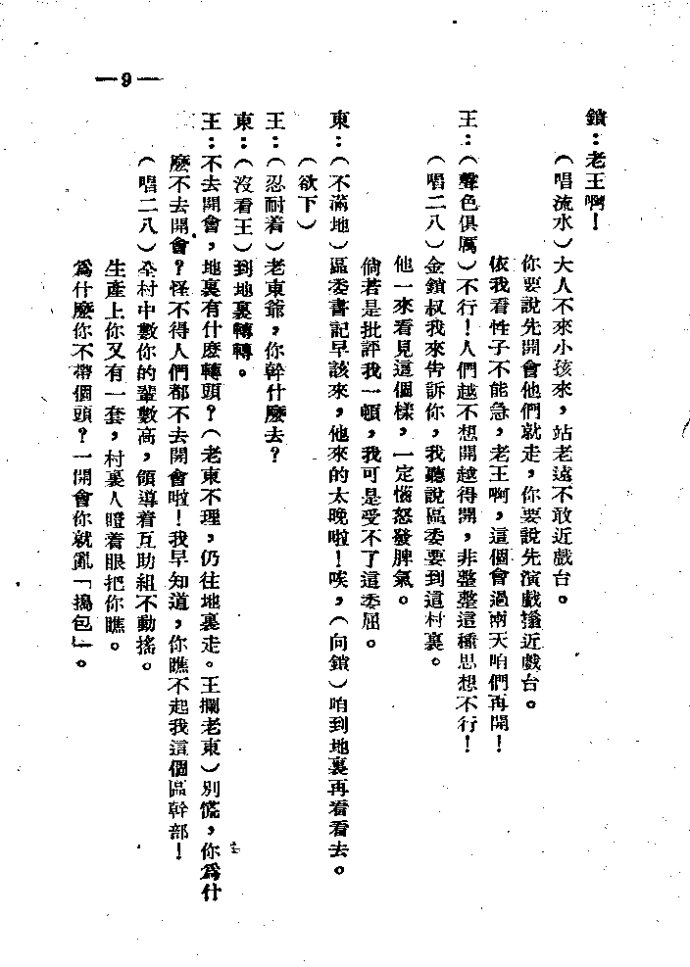 —9—
鎖：老王啊！
（唱流水）大人不來小孩來，站老遠不敢近戲台。
你要說先開會他們就走，你要說先演戲擋近戲台。
依我看性子不能急，老王啊，這個會過兩天咱們再開！
王：（聲色俱厲）不行！人們越不想開越得開，非整整這種思想不行！
（唱二八）金鎖叔我來告訴你，我聽說區委要到這村裏。
他一來看見這個樣，一定惱怒發脾氣。
倘若是批評我一頓，我可是受不了這委屈。
東：（不滿地）區委書記早該來，他來的太晚啦！唉，（向鎖）咱到地裏再看看去。
（欲下）
王：（忍耐着）老東爺，你幹什麽去？
東：（沒看王）到地裏轉轉。
王：不去開會，地裏有什麽轉頭？（老東不理，仍往地裏走。王攔老東）別慌，你爲什
麽不去開會？怪不得人們都不去開會啦！我早知道，你瞧不起我這個區幹部！
（唱二八）全村中數你的輩數高，領導着互助組不動搖。
生產上你又有一套，村裏人瞪着眼把你瞧。
爲什麽你不帶個頭？一開會你就亂「搗包」。